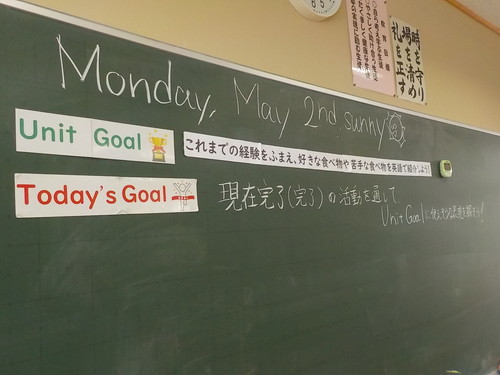 時を守り
場を清め
礼を正す
教育目標
Monday, May 2nd sunny
Unit Goal
これまでの経験をふまえ、好きな食べ物や苦手な食べ物を英語で紹介しよう!
Today's Goal
現在完了(完了)の活動を通して、
Unit Goalに